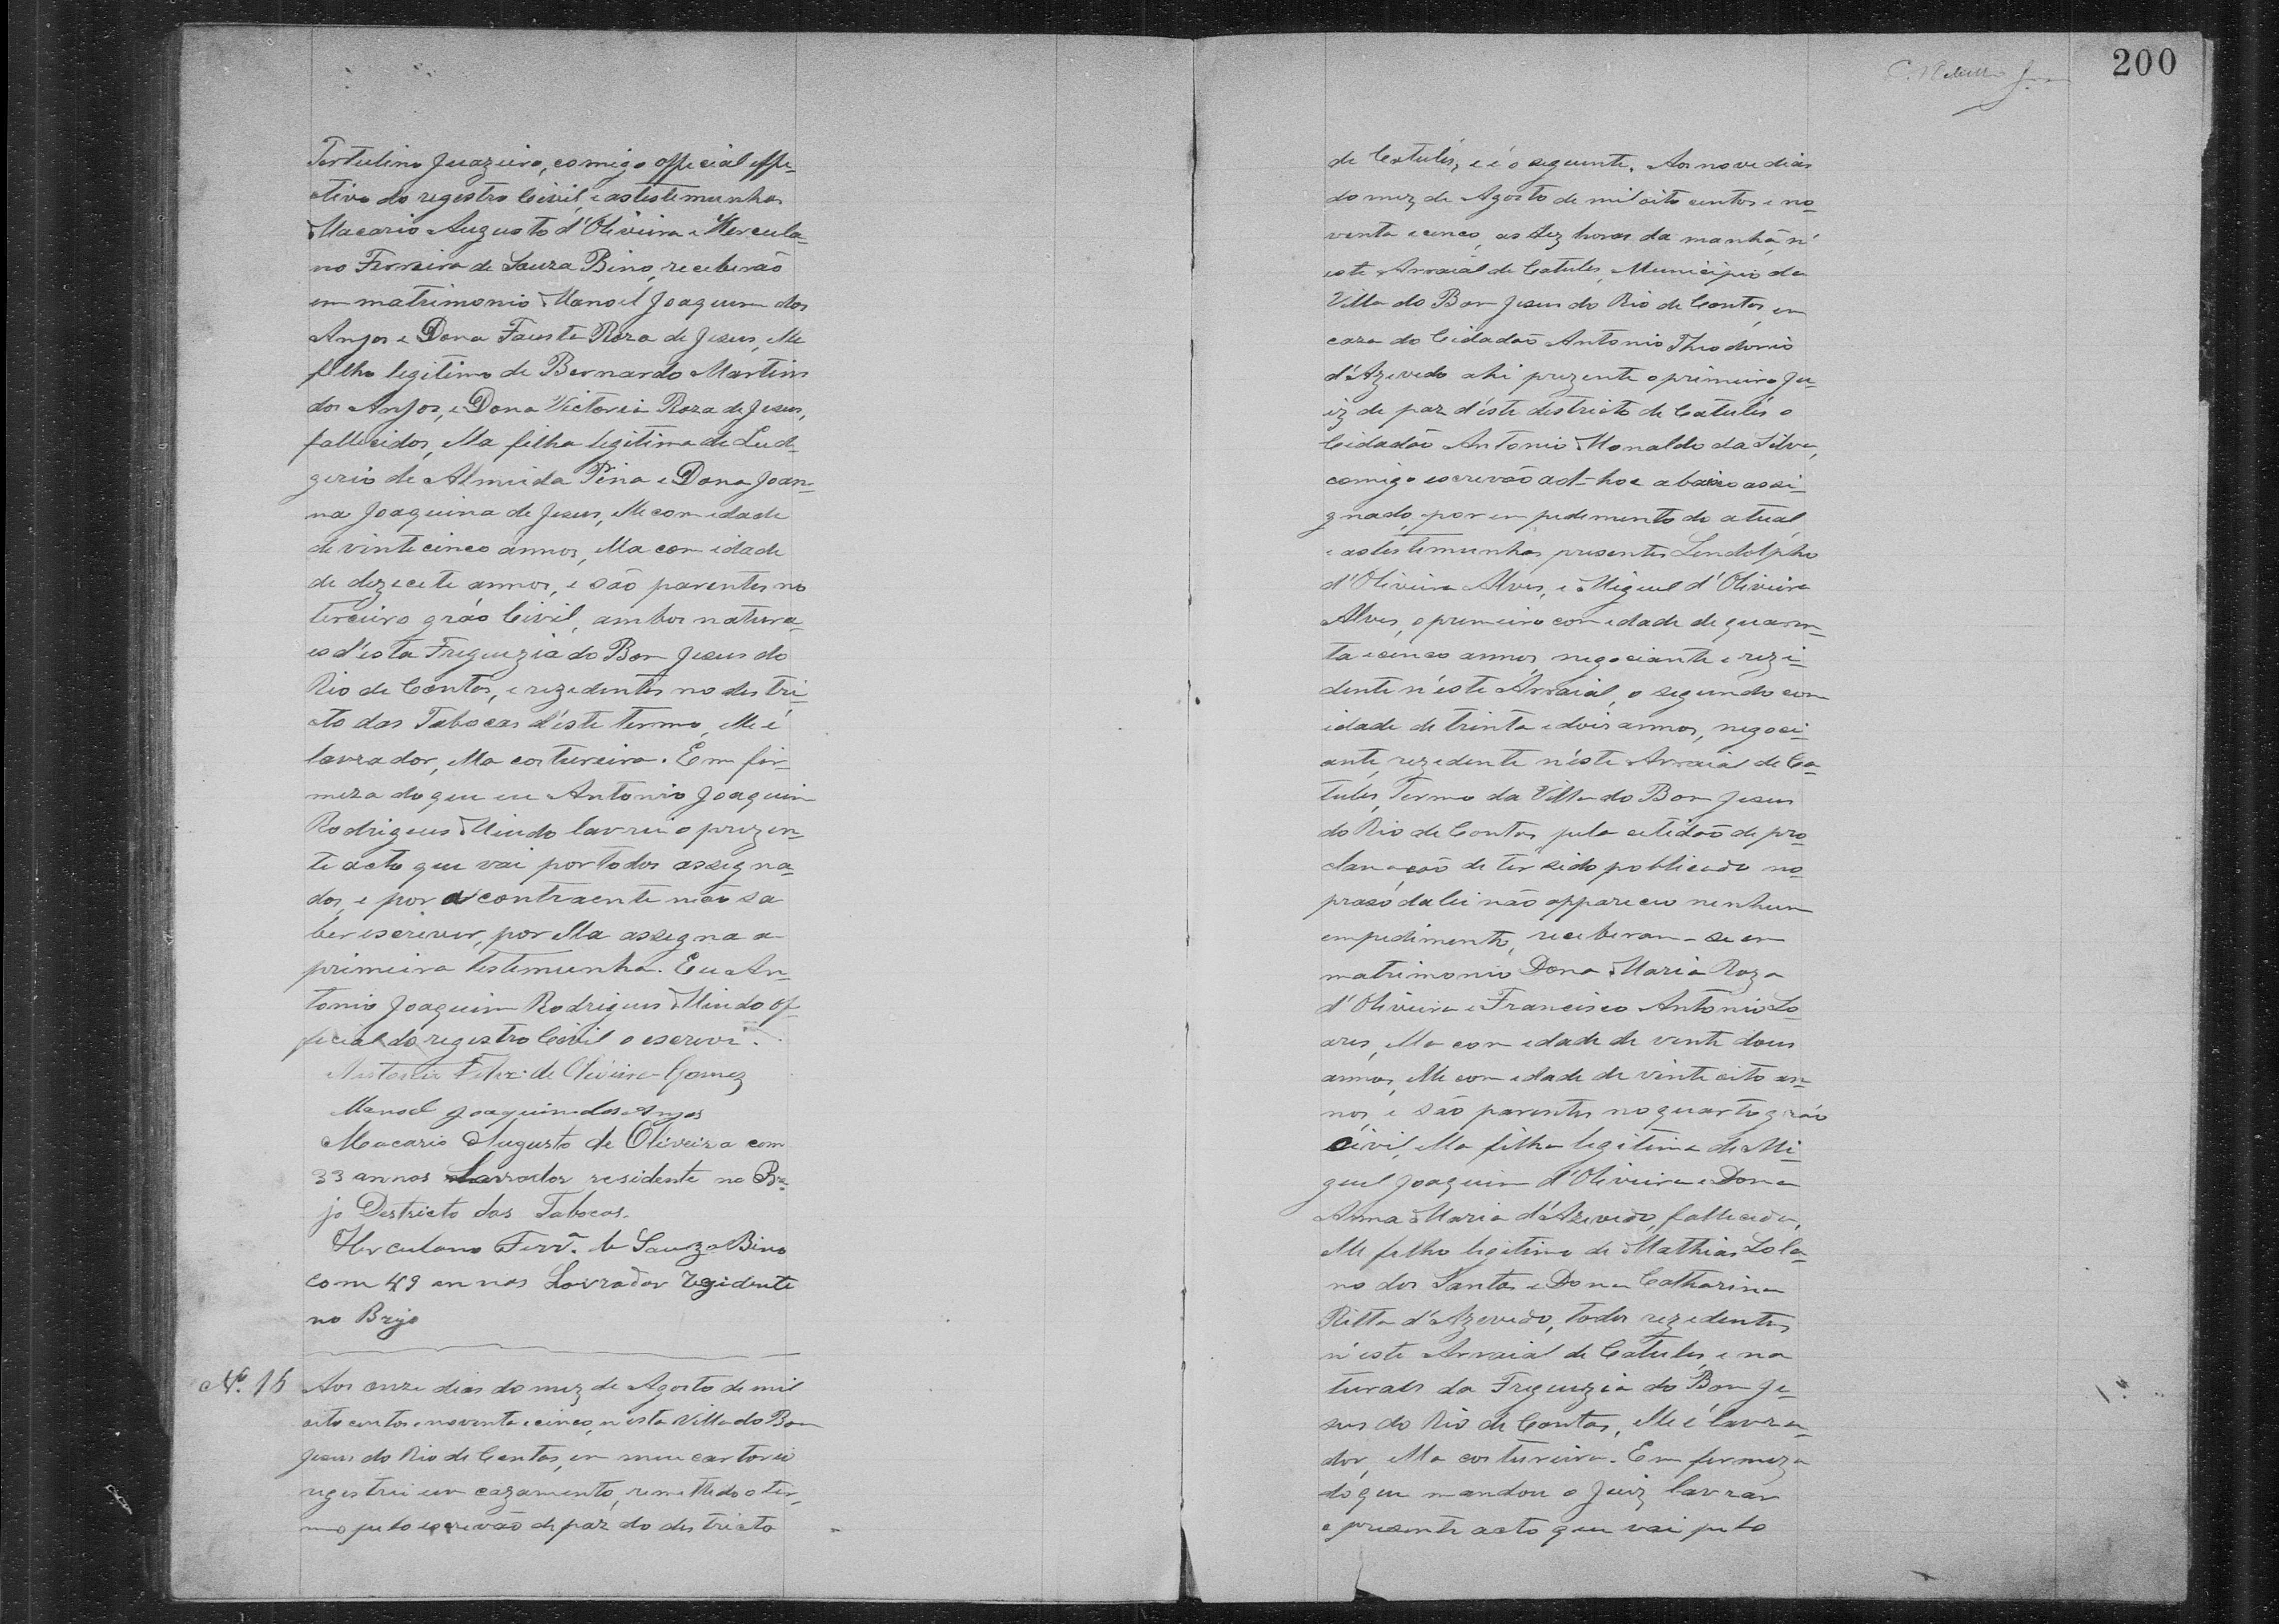 Tertulino Juazeiro, comigo official effe-
ctivo do registro Civil, e as testemunhas
Macario Augusto d'Oliveira e Hercula-
no Ferreira de Souza Bino, receberão
em matrimonio Manoel Joaquim dos
Anjos e Dona Fausta Roza de Jesus, elle
filho legitimo de Bernardo Martins
dos Anjos, e Dona Victoria Roza de Jesus,
fallecidos, ella filha legitima de Lud-
gerio de Almeida Pina e Dona Joan-
na Joaquina de Jesus, elle com edade
de vinte cinco annos, ella com idade
de dezecete annos, e são parentes no
terceiro gráo Civil, ambos natura-
es d'esta Freguezia do Bom Jesus do
Rio de Contas, e rezedentes no destri-
cto das Tabocas d'éste termo, elle é
lavrador, ella costureira. Em fir-
meza do que eu Antonio Joaquim
Rodrigues Mindo lavrei o prezen-
te acto que vai por todos assigna-
dos, e por a contraente não sa
ber escrever, por ella assegna a
primeira testemunha. Eu An-
tonio Joaquim Rodrigues Mindo of-
ficial do registro Civil o escrevi.
Antonio Felix de Oliveira Gomez
Manoel Joaquim dos Anjos
Macario Augusto de Oliveira com
33 annos Lavrador residente no Bre-
jo Destricto das Tabocas.
Herculano Ferrª. de Sauza Bino
com 49 annos Lavrador rezidente
no Brejo
Nº. 16 Aos onze dias do mez de Agosto de mil
oito centos e noventa e cinco, n'esta Villa do Bom
Jesus do Rio de Contas, em meu cartorio
registrei um cazamento, remettedo o ter-
mo pelo escrevão de paz do destricto
200
de Catulés, e é o seguente. Aos nove dias
do mez de Agosto de mil oito centos e no-
venta e cinco, as dez horas da manhã n'
este Arraial de Catules, Municipio da
Villa do Bom Jesus do Rio de Contas, em
caza do Cidadão Antonio Theodorio
d'Azevedo ahi prezente o primeiro Ju-
iz de paz d'éste destricto de Catulés o
Cidadão Antonio Monaldo da Silva,
comigo escrevão ad-hoc abaixo assi-
gnado, por empedimento do atual,
e as testemunhas presentes Lendolpho
d'Oliveira Alves, e Miguel d'Oliveira
Alves, o primeiro com edade de quaren-
ta e cinco annos, negociante e rezi-
dente n'éste Arraial, o segundo com
idade de trinta e dois annos, negoci-
ante, rezedente n'éste Arraial de Ca-
tules, Termo da Villa do Bom Jesus
do Rio de Contas, pela cetidão de pro-
clamação de ter sido poblicado no
praso da lei não appareceu nenhum
empedimento, receberam-se em
matrimonio Dona Maria Roza
d'Oliveira e Francisco Antonio So-
ares, ella com edade de vente dous
annos, elle com edade de vinte oito an-
nos, e são parentes no quarto gráo
civil, ella filha legitima de Mi-
guel Joaquim d'Oliveira e Dona
Anna Maria d'Azevedo, fallecida,
elle filho legitimo de Mathias Sola-
no dos Santos e Dona Catharina
Ritta d'Azevedo, todos rezedentes
n'este Arraial de Catules, e na
turaes da Freguezia do Bom Je-
sus do Rio de Contas, elle é lavra-
dor, ella costureira. Em fermeza
do que mandou o Juiz lavrar
o presente acto que vai pelo